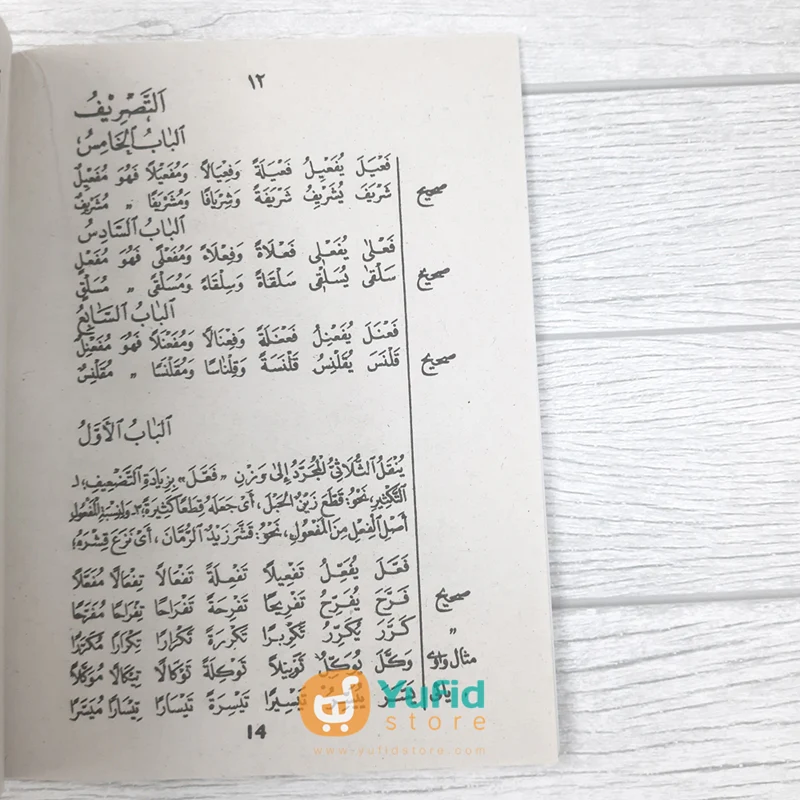 ١٢
اَلتَّصْرِيْفُ
اَلْبَابُ الْخَامِسُ
فَعْيَلَ يُفَعْيِلُ فَعْيَلَةً وَفِعْيَالاً وَمُفَعْيَلاً فَهُوَ مُفَعْيِلٌ
صحيح شَرْيَفَ يُشَرْيِفُ شَرْيَفَةً وَشِرْيَافًا وَمُشَرْيَفًا " مُشَرْيِفٌ
اَلْبَابُ السَّادِسُ
فَعْلٰى يُفَعْلِى فَعْلَاةً وَفِعْلَاءً وَمُفَعْلًى فَهُوَ مُفَعْلٍ
صحيح سَلْقٰى يُسَلْقِى سَلْقَاةً وَسِلْقَاءً وَمُسَلْقًى " مُسَلْقٍ
اَلْبَابُ السَّابِعُ
فَعْنَلَ يُفَعْنِلُ فَعْنَلَةً وَفِعْنَالاً وَمُفَعْنَلاً فَهُوَ مُفَعْنِلٌ
صحيح قَلْنَسَ يُقَلْنِسُ قَلْنَسَةً وَقِلْنَاسًا وَمُقَلْنَسًا " مُقَلْنِسٌ
اَلْبَابُ الْأَوَّلُ
يُنْقَلُ الثُّلَاثِيُّ الْمُجَرَّدُ إِلَى وَزْنِ «فَعَّلَ» بِزِيَادَةِ التَّضْعِيْفِ؛ ١ـ
التَّكْثِيْرِ، نَحْوُ: قَطَّعَ زَيْنٌ الْحَبْلَ، أَىْ جَعَلَهُ قِطَعًا كَثِيْرَةً؛ ٢ـ
أَصْلِ الْفِعْلِ مِنَ الْمَفْعُوْلِ، نَحْوُ: قَشَّرَ زَيْدٌ الرُّمَّانَ، أَىْ نَزَعَ قِشْرَهُ؛
فَعَّلَ يُفَعِّلُ تَفْعِيْلاً تَفْعِلَةً تَفْعَالاً تِفْعَالاً مُفَعَّلاً
صحيح فَرَّحَ يُفَرِّحُ تَفْرِيْحًا تَفْرِحَةً تَفْرَاحًا تِفْرَاحًا مُفَرَّحًا
" كَرَّرَ يُكَرِّرُ تَكْرِيْرًا تَكْرِرَةً تَكْرَارًا تِكْرَارًا مُكَرَّرًا
مثال واوى وَكَّلَ يُوَكِّلُ تَوْكِيْلاً تَوْكِلَةً تَوْكَالاً تِيْكَالاً مُوَكَّلاً
تَيْسِيْرًا تَيْسِرَةً تَيْسَارًا تِيْسَارًا مُيَسَّرًا
14
Yufid
store
www.yufidstore.com